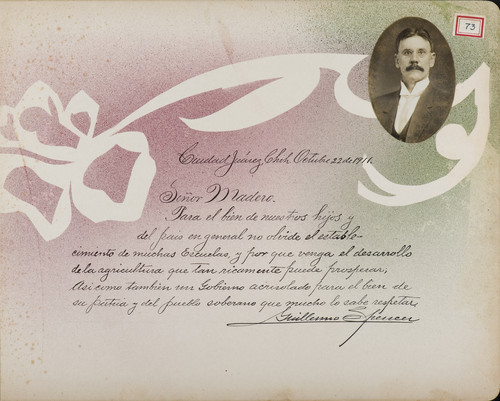 73
Ciudad Juárez, Chih, Octubre 22 de 1911.
Señor Madero.
Para el bien de nuestros hijos y
del pais en general no olvide el estable-
cimiento de muchas Escuelas, y por que venga el desarrollo
de la agricultura que tan ricamente puede prosperar,
Asi como también un Gobierno acrisolado para el bien de
su patria y del pueblo soberano que mucho lo sabe respetar,
Guillermo Spencer